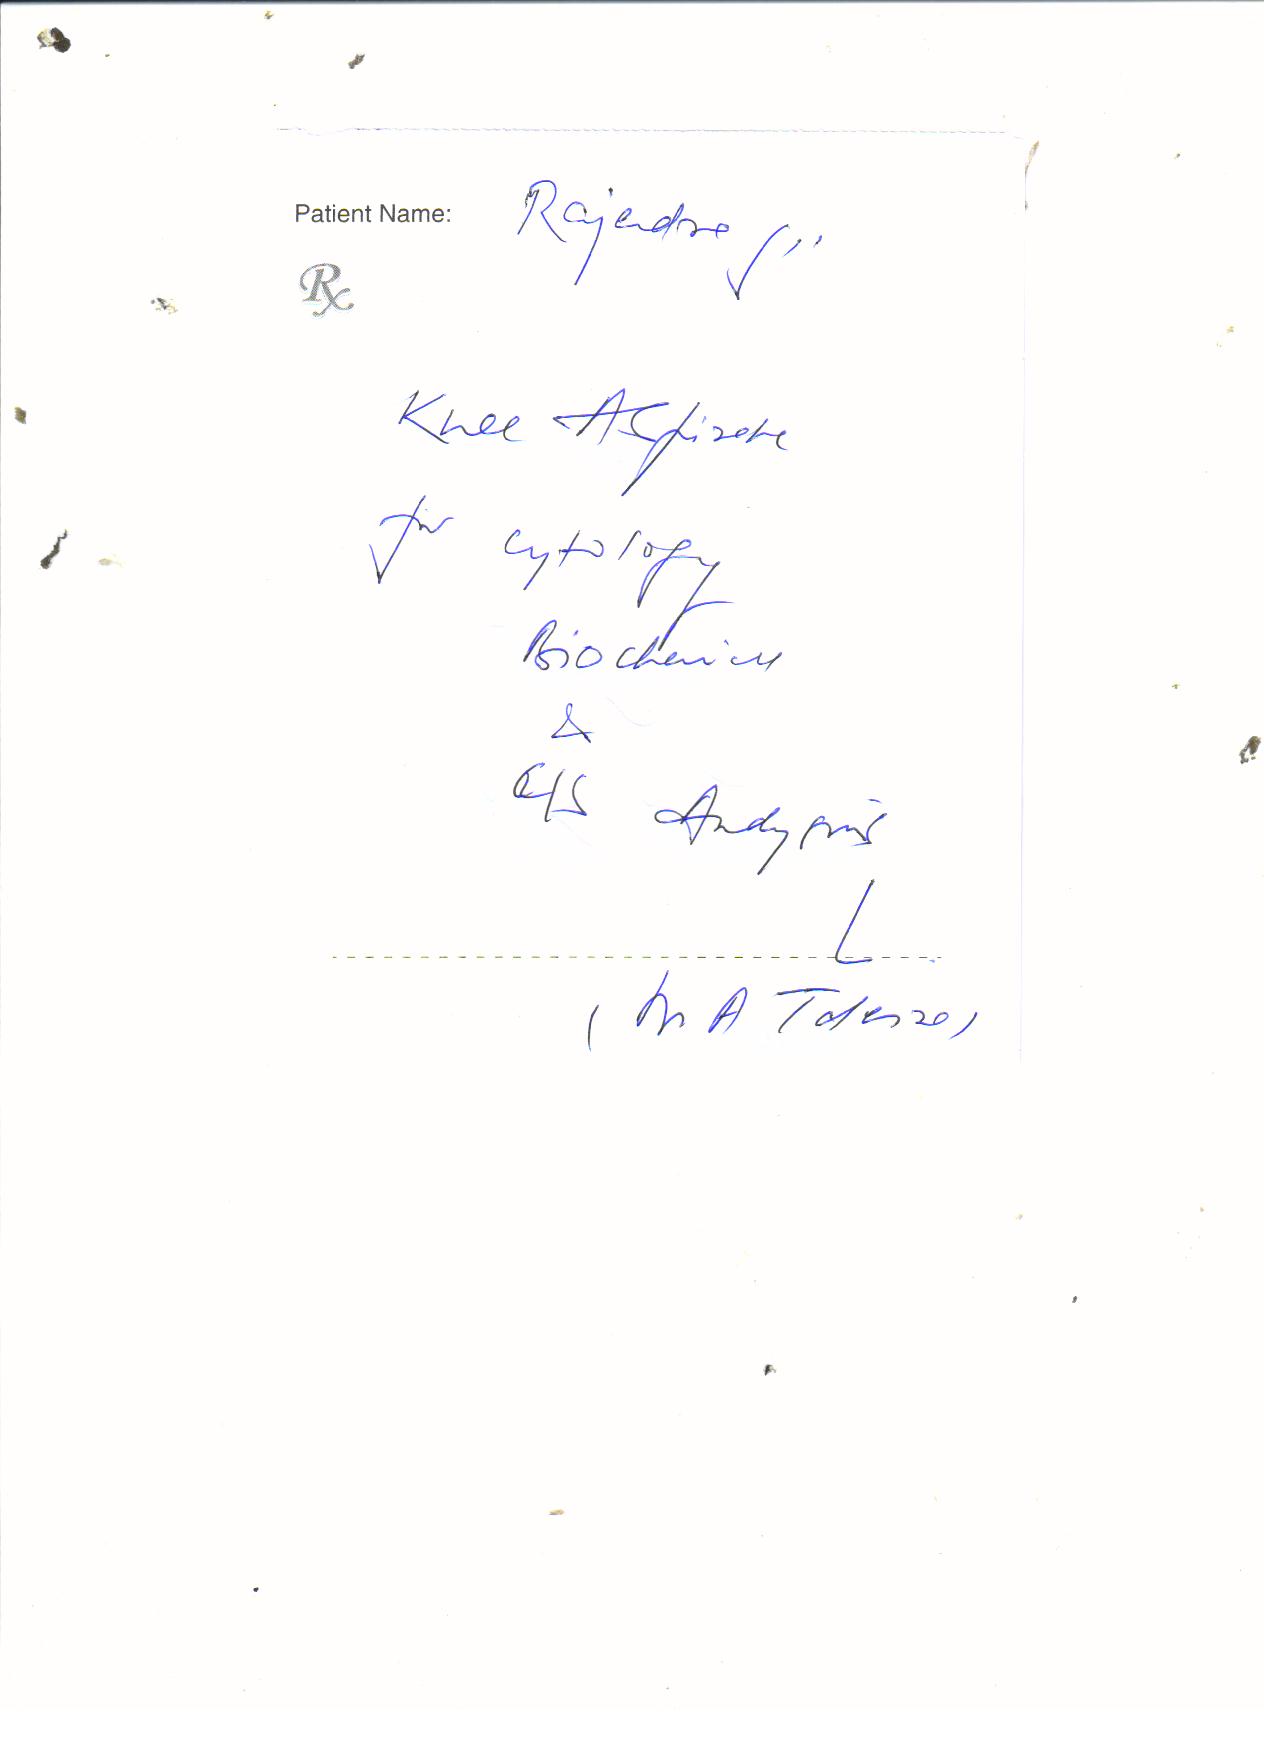 Patient Name: Rajendra Ji
Rx
Knee Aspirate
for cytology
Biochemical
&
C/S Analysis
(Dr A